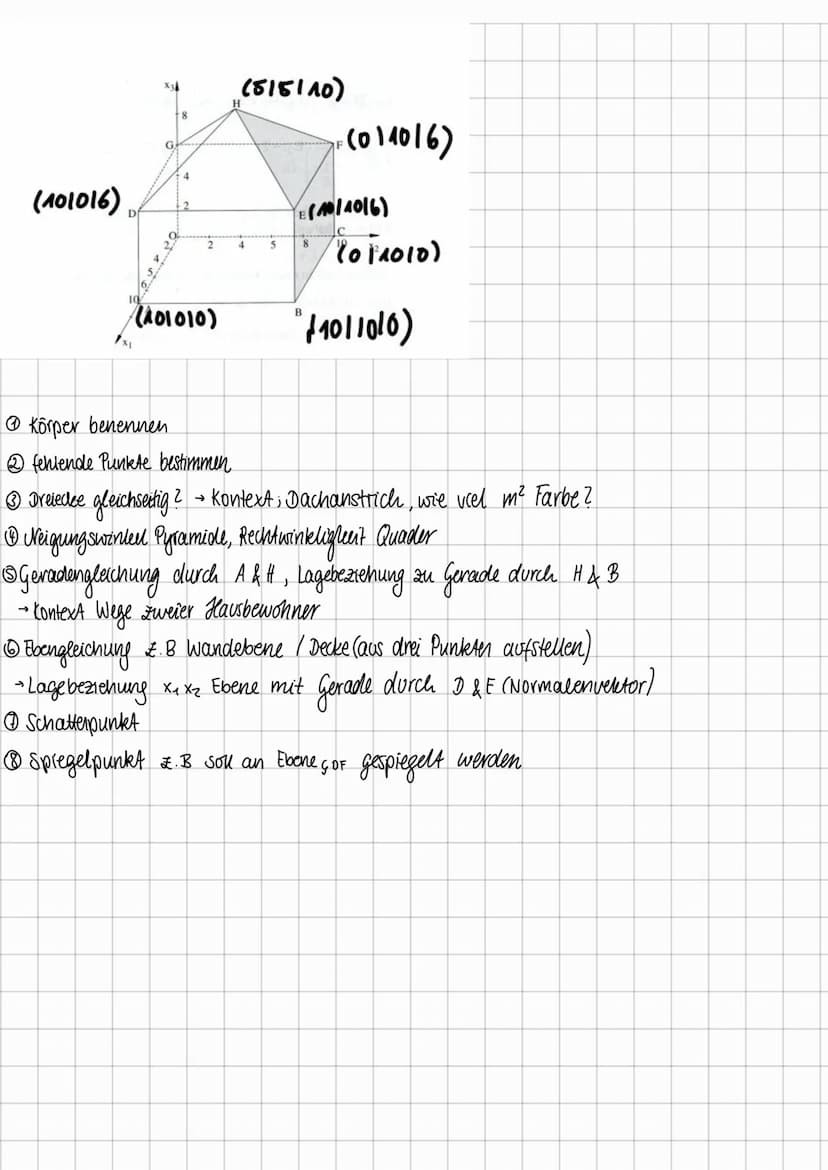 x3
(5|5|10)
H
8
G
F (0|10|6)
4
(10|0|6)
D
2
E (10|10|6)
O
C
2 2 4 5 8 10 x2
4
(0|10|0)
5
6
10
(10|0|0)
B
(10|10|0)
x1
① Körper benennen
② fehlende Punkte bestimmen
③ Dreiecke gleichseitig? → Kontext; Dachanstrich, wie viel m² Farbe?
④ Neigungswinkel Pyramide, Rechtwinkligkeit Quader
⑤ Geradengleichung durch A & H, Lagebeziehung zu Gerade durch H & B
→ Kontext Wege zweier Hausbewohner
⑥ Ebengleichung z.B Wandebene / Decke (aus drei Punkten aufstellen)
→ Lagebeziehung x₁ x₂ Ebene mit Gerade durch D & E (Normalenvektor)
⑦ Schattenpunkt
⑧ Spiegelpunkt z.B soll an Ebene GDF gespiegelt werden